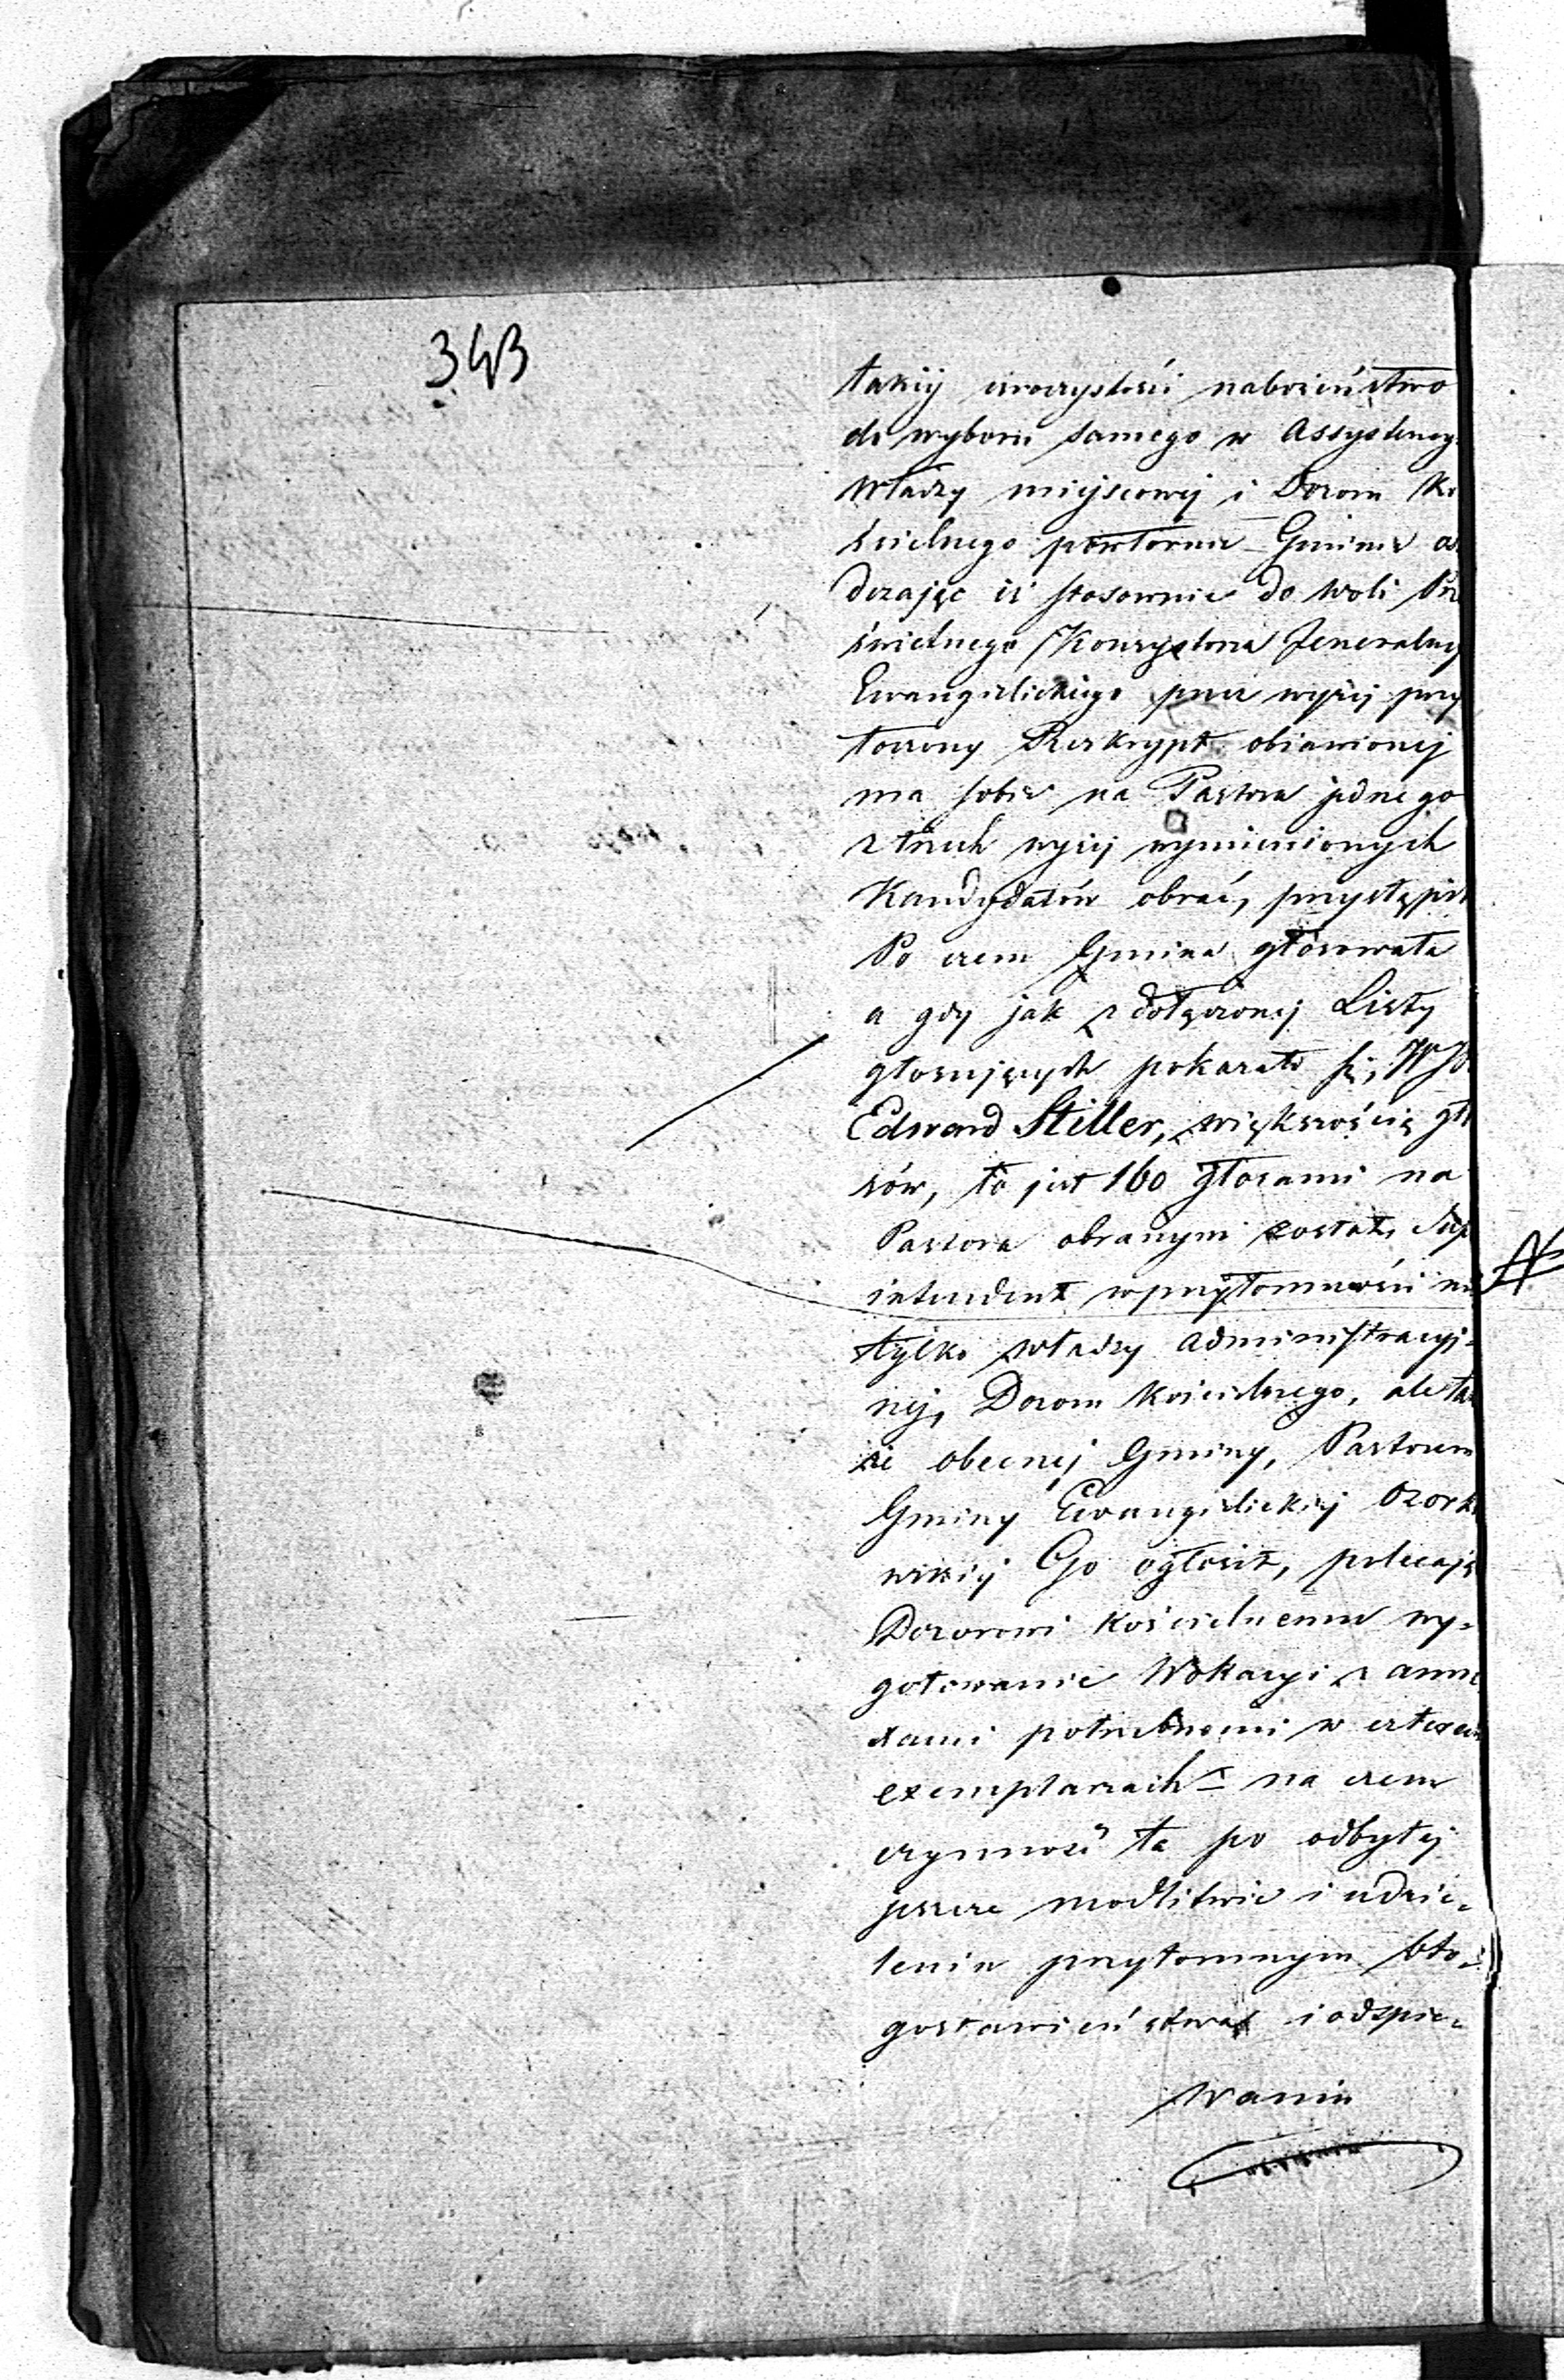 343
takiej uroczystości nabożeństwo
do wyboru samego w Assystency
Władzy miejscowej i Dozoru Ko
ścielnego powtórnie Gminie
dczając iż stosownie do woli Prze
świetnego Konsystorza Jeneralneg
Ewangielickiego przez wyżej przy
toczony Reskrypt obiawionej
ma sobie na Pastora jednego
z trzech wyżej wymienionych
Kandydatów obrać, przystąpił
Po czem Gmina głosowała
a gdy jak z dołączonej Listy
głosujących pokazało się, WJ
Edward Stiller, większością gło
sów, to jest 160 głosami na
Pastora obranym został, Sup
intendent w przytomności nie
tylko władzy administracyj=
nej, Dozoru Kościelnego, ale tak
że obecnej Gminy, Pastorem
Gminy Ewangielickiej Ozork
wskiej Go ogłosił, polecają
Dozorowi Kościelnemu wy=
gotowanie Wokacyi z anne
xami potrzebnemi w czterech
exemplarzach na czem
czynność ta po odbytej
jeszcze modlitwie i udzie=
leniu przytomnym bło=
gosławieństwa i odśpie=
waniu